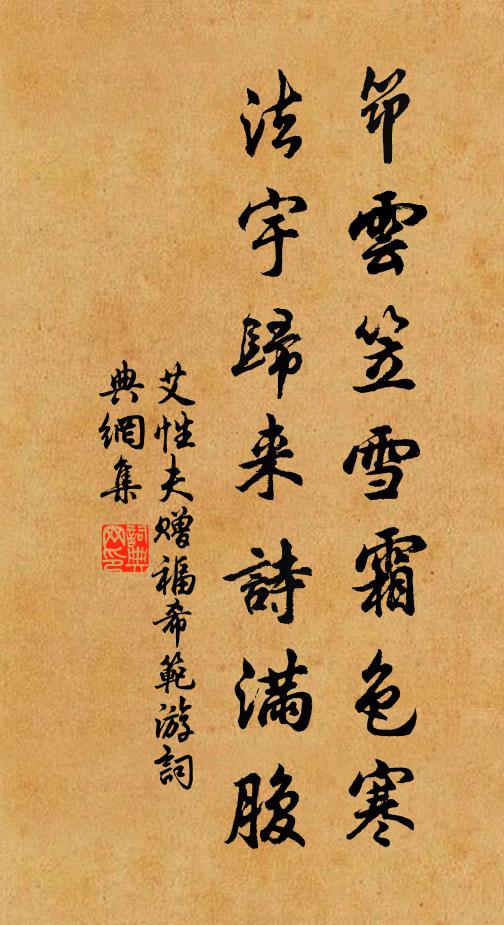 筇雲笠雪霜色寒
法宇歸来詩滿腹
艾性夫贈福希範游詞
典網集
詞典
网印